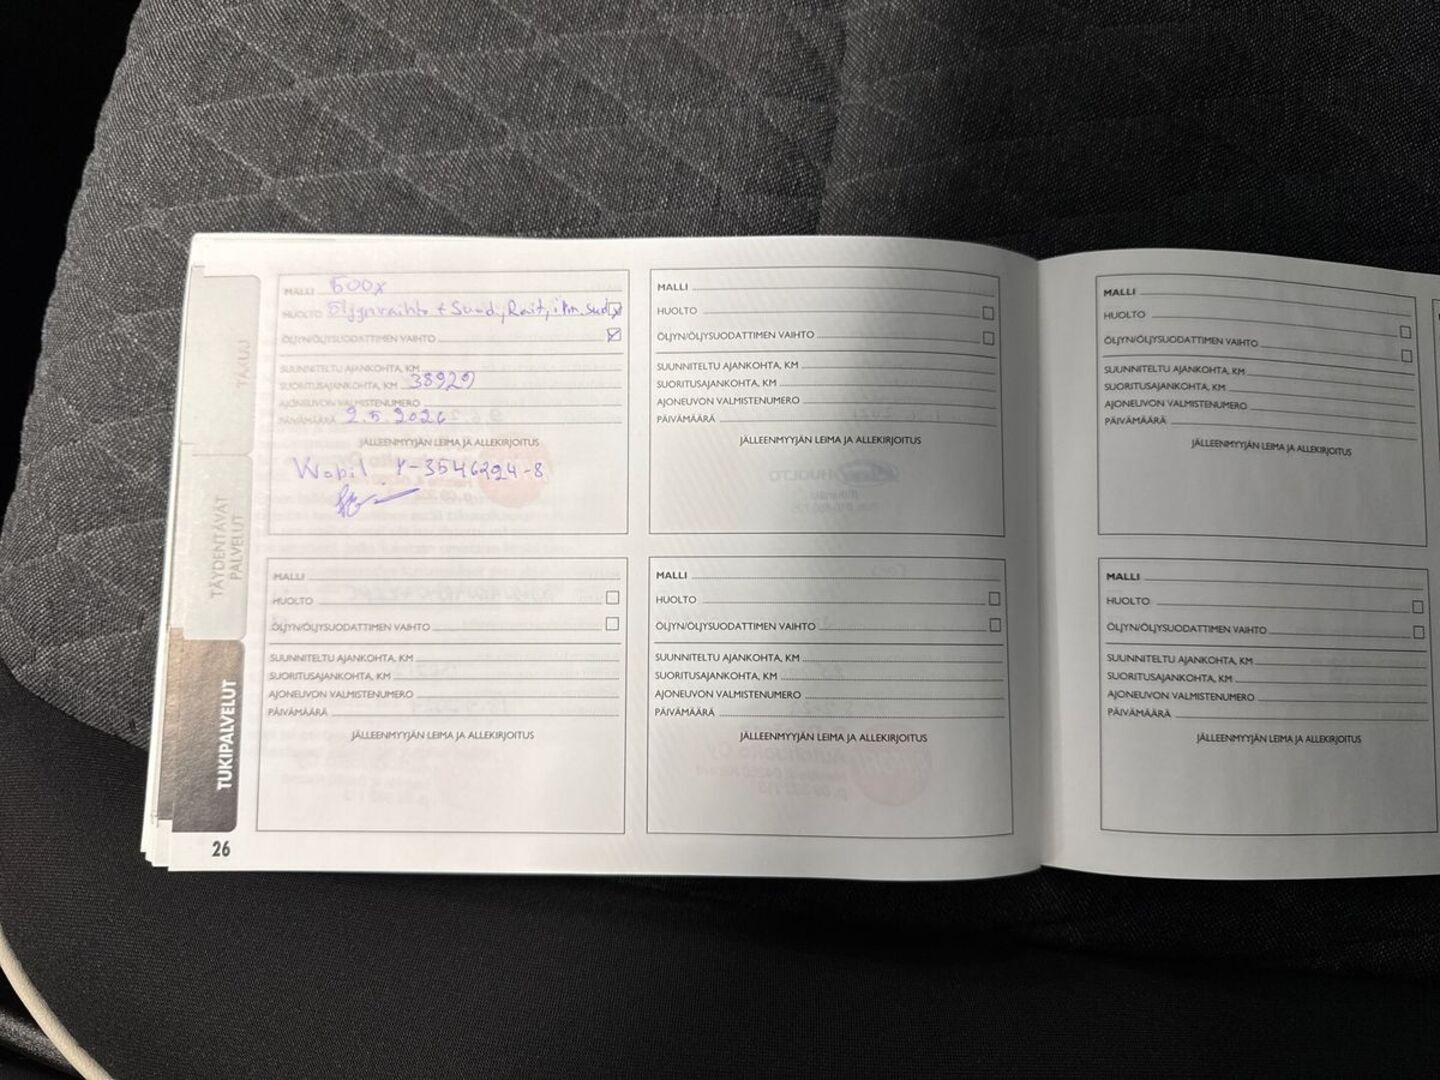 TAKUU
TÄYDENTÄVÄT
PALVELUT
TUKIPALVELUT
26
MALLI 500x
HUOLTO Öljynvaihto + Suod., Rait, ilm. suod
ÖLJYN/ÖLJYSUODATTIMEN VAIHTO
SUUNNITELTU AJANKOHTA, KM
SUORITUSAJANKOHTA, KM 38929
AJONEUVON VALMISTENUMERO
PÄIVÄMÄÄRÄ 2.5.2026
JÄLLEENMYYJÄN LEIMA JA ALLEKIRJOITUS
Wobil Y-3546294-8
MALLI
HUOLTO
ÖLJYN/ÖLJYSUODATTIMEN VAIHTO
SUUNNITELTU AJANKOHTA, KM
SUORITUSAJANKOHTA, KM
AJONEUVON VALMISTENUMERO
PÄIVÄMÄÄRÄ
JÄLLEENMYYJÄN LEIMA JA ALLEKIRJOITUS
MALLI
HUOLTO
ÖLJYN/ÖLJYSUODATTIMEN VAIHTO
SUUNNITELTU AJANKOHTA, KM
SUORITUSAJANKOHTA, KM
AJONEUVON VALMISTENUMERO
PÄIVÄMÄÄRÄ
JÄLLEENMYYJÄN LEIMA JA ALLEKIRJOITUS
MALLI
HUOLTO
ÖLJYN/ÖLJYSUODATTIMEN VAIHTO
SUUNNITELTU AJANKOHTA, KM
SUORITUSAJANKOHTA, KM
AJONEUVON VALMISTENUMERO
PÄIVÄMÄÄRÄ
JÄLLEENMYYJÄN LEIMA JA ALLEKIRJOITUS
MALLI
HUOLTO
ÖLJYN/ÖLJYSUODATTIMEN VAIHTO
SUUNNITELTU AJANKOHTA, KM
SUORITUSAJANKOHTA, KM
AJONEUVON VALMISTENUMERO
PÄIVÄMÄÄRÄ
JÄLLEENMYYJÄN LEIMA JA ALLEKIRJOITUS
MALLI
HUOLTO
ÖLJYN/ÖLJYSUODATTIMEN VAIHTO
SUUNNITELTU AJANKOHTA, KM
SUORITUSAJANKOHTA, KM
AJONEUVON VALMISTENUMERO
PÄIVÄMÄÄRÄ
JÄLLEENMYYJÄN LEIMA JA ALLEKIRJOITUS